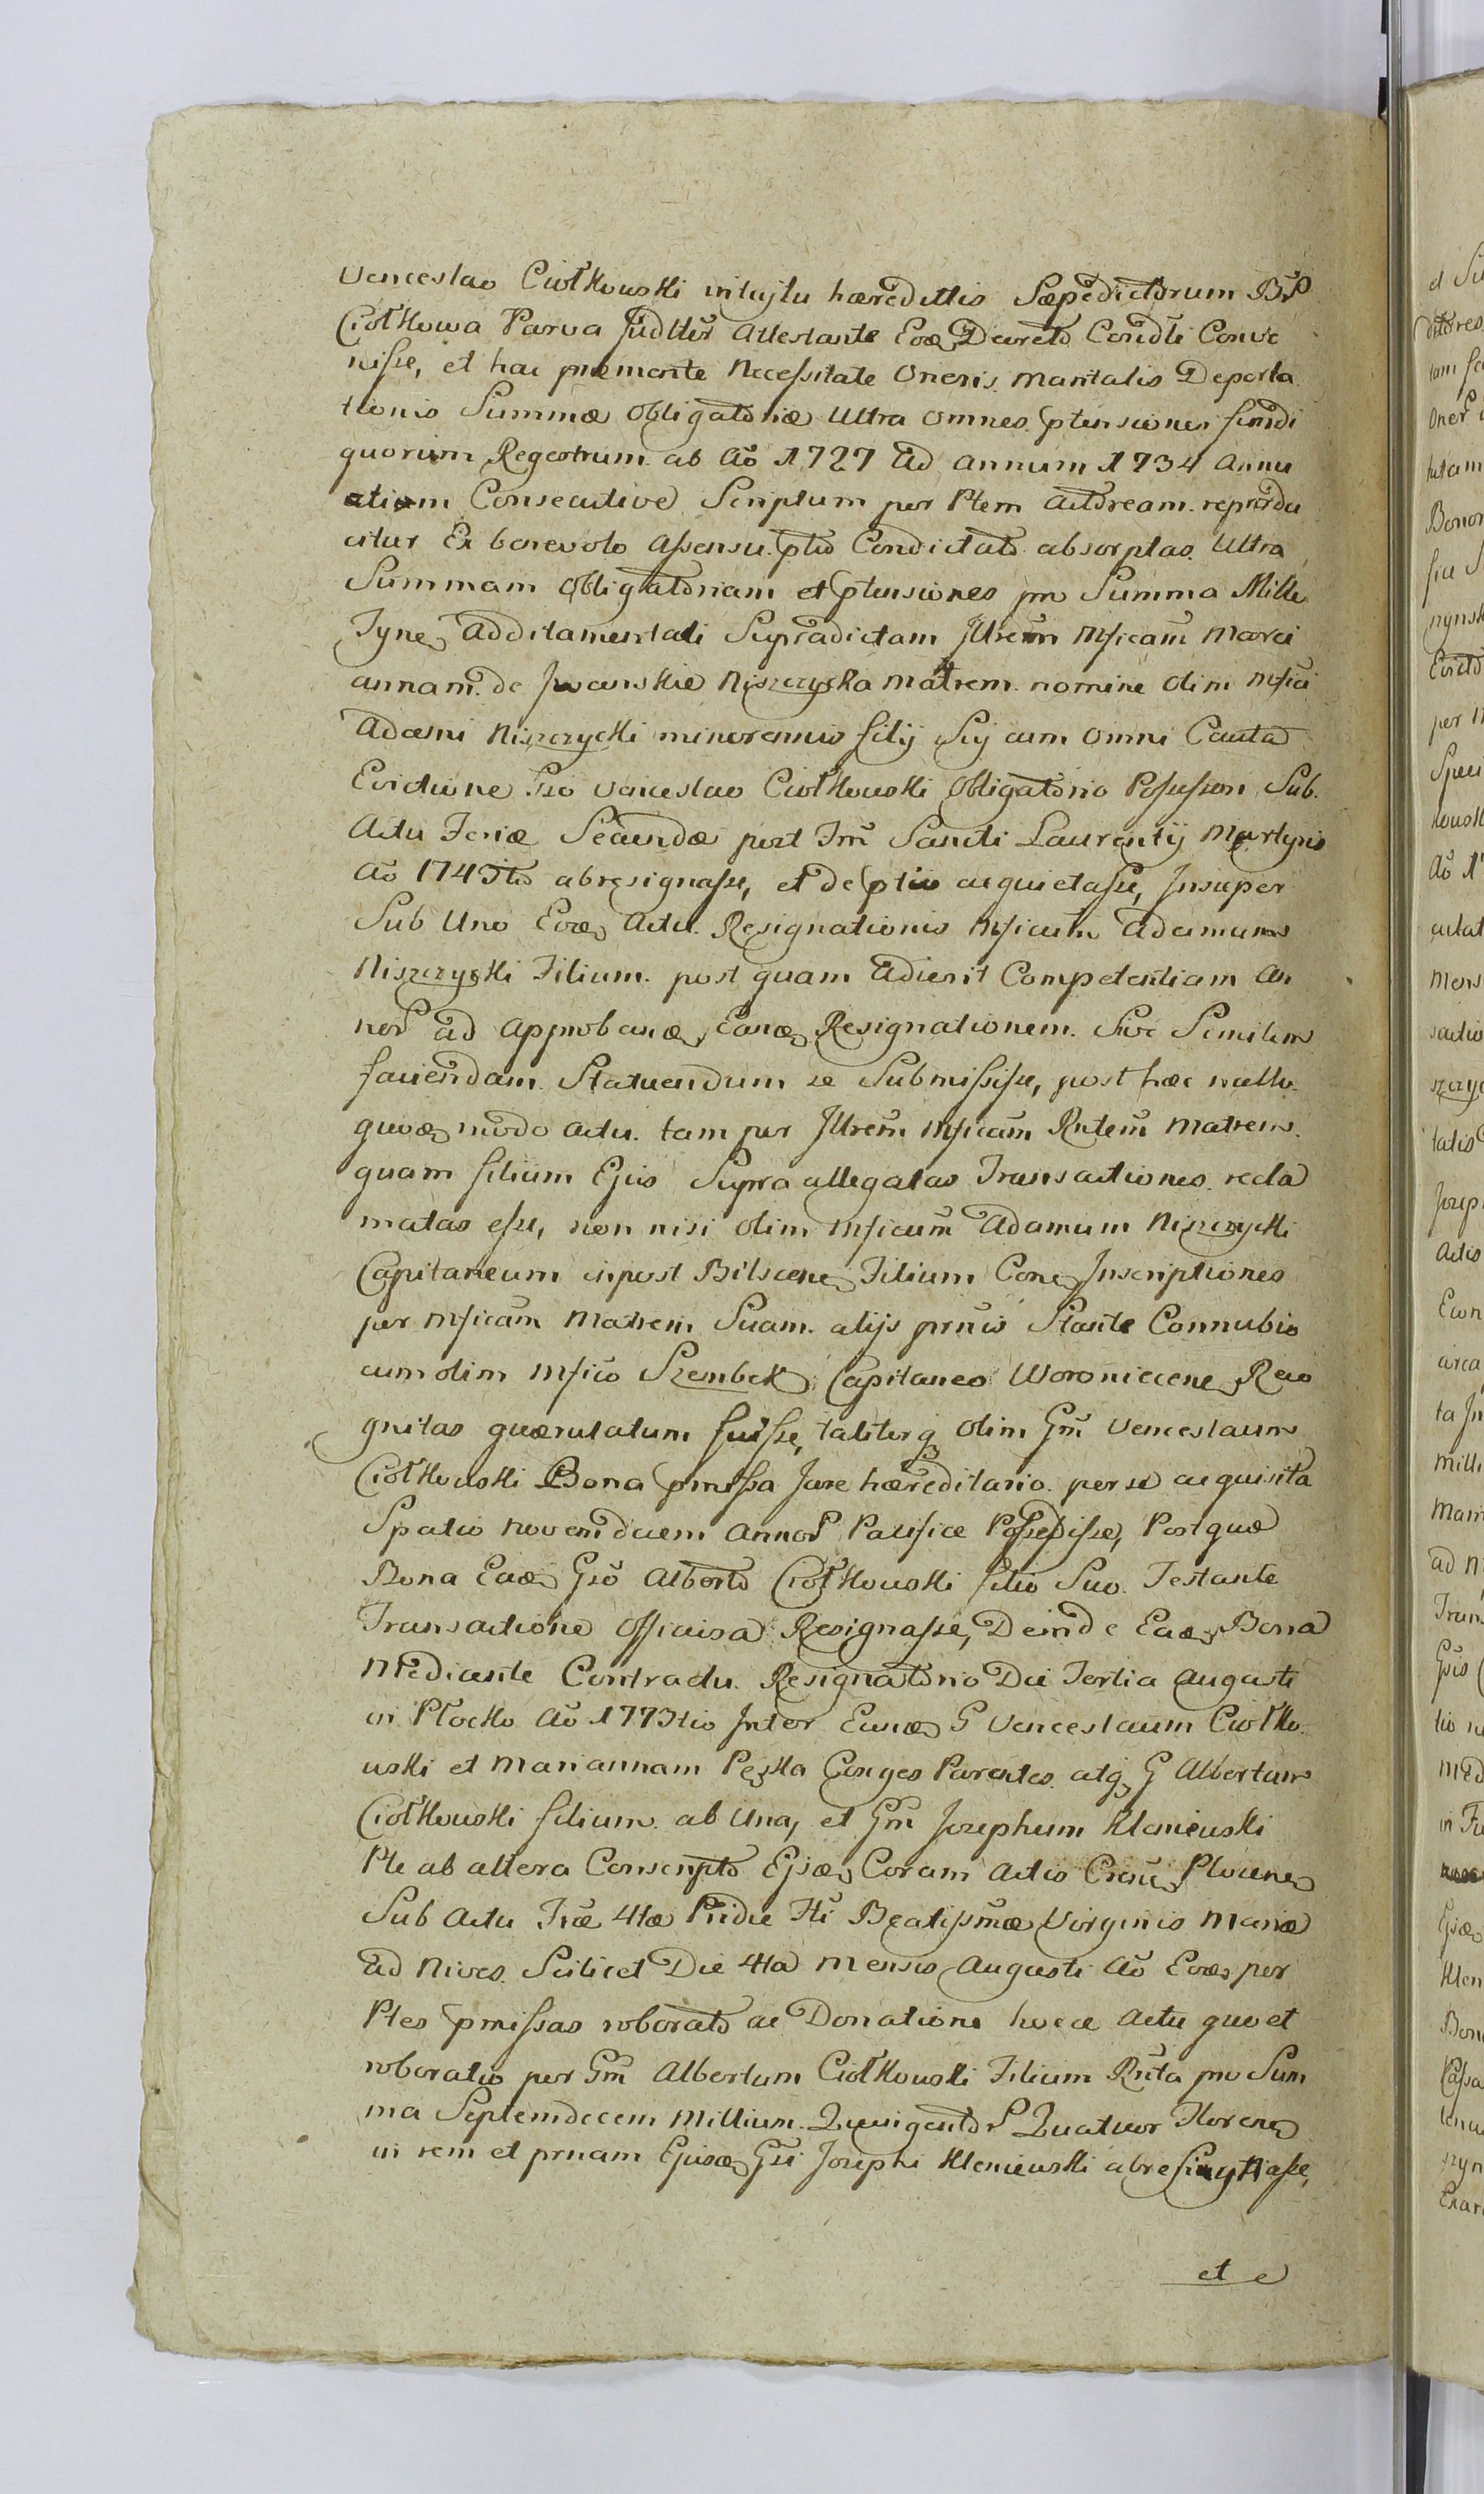 Venceslao Ciołkowski intuytu hæredittis Sæpedictorum B.P
Ciołkowa Parva Judtter Attestante Eoq Decreto Condti Conve
nisse, et hac præmente Necessitate Oneris Maritalis Deporta
tionis Summæ Obligatoriæ Ultra Omnes ptensiones fundi
quorum Regestrum ab Ao 1727 Ad Annum 1734 Annu
atim Consecutive Scriptum per Ptem Actoream reprodu
citur Ex benevolo Assensu ptio Condictato absorptas Ultra
Summam Obligatoriam et ptensiones pro Summa Mille
Tyne Additamentali Supradictam Jllrem Mficam Mari
annam de Niszczycka Matrem nomine Olim Mfici
Adami Niszczycki minorennis filij Sij cum Omni Cauta
Evictione Gso Venceslao Ciołkowski Obligatorio Possessori Sub
Actu Feriæ Secundæ post Fm Sancti Laurentij Martyris
Ao 1743tio abresignasse, et de ptio acquietasse, Insuper
Sub Uno Eoq Actu Resignationis Mficum Adamum
Niszczycki Filium post quam Adierit Competentiam An
nor ad Approbanq Eanq Resignationem Sive Similem
faciendam Statuendum se Submississe, post hæc nullo
quoq modo Actu tam per Jllrem Mficam Rntem Matrem
quam filium Ejus Supra allegatas Transactiones recla
matas esse, non nisi Olim Mficum Adamum Niszczycki
Capitaneum inpost Bilscene Filium Cone Inscriptiones
per Mficam Matrem Suam alijs prnis Stante Connubio
cum olim Mfico Szembek Capitaneo Woroniecene Reco
gnitas quærulatum fuisse, taliterq Olim Gm Venceslaum
Ciołkowski Bona pmissa Jure hæreditario per se acquisita
Spatio Novemdecem Annor Pacifice Possedisse, Post quæ
Bona Eaq Gso Alberto Ciołkowski filio Suo Testante
Transactione Officiosa Resignasse, Deinde Eaq Bona
Mediante Contractu Resignatorio Die Tertia Augusti
in Płocko Ao 1773tio Inter Eunq G Venceslaum Ciołko
wski et Mariannam Conges Parentes atq G Albertum
Ciołkowski filium ab Una, et Gm Josephum Kleniewski
Pte ab altera Conscripto Ejsq Coram Actis Plocene
Sub Actu Friæ 4tæ Pridie Fti Beatissmæ Virginis Mariæ
Ad Nives Scilicet Die 4ta Mensis Augusti Ao Eoq per
Ptes pmissas roborato ac Donationis hocce Actu quo et
roboratio per Gm Albertum Ciołkowski Filium Rnta pro Sum
ma Septemdecem Millium Quingentor Quatuor Florene
in rem et prnam Ejusq Gsi Josephi Kleniewski abresignasse,
et e